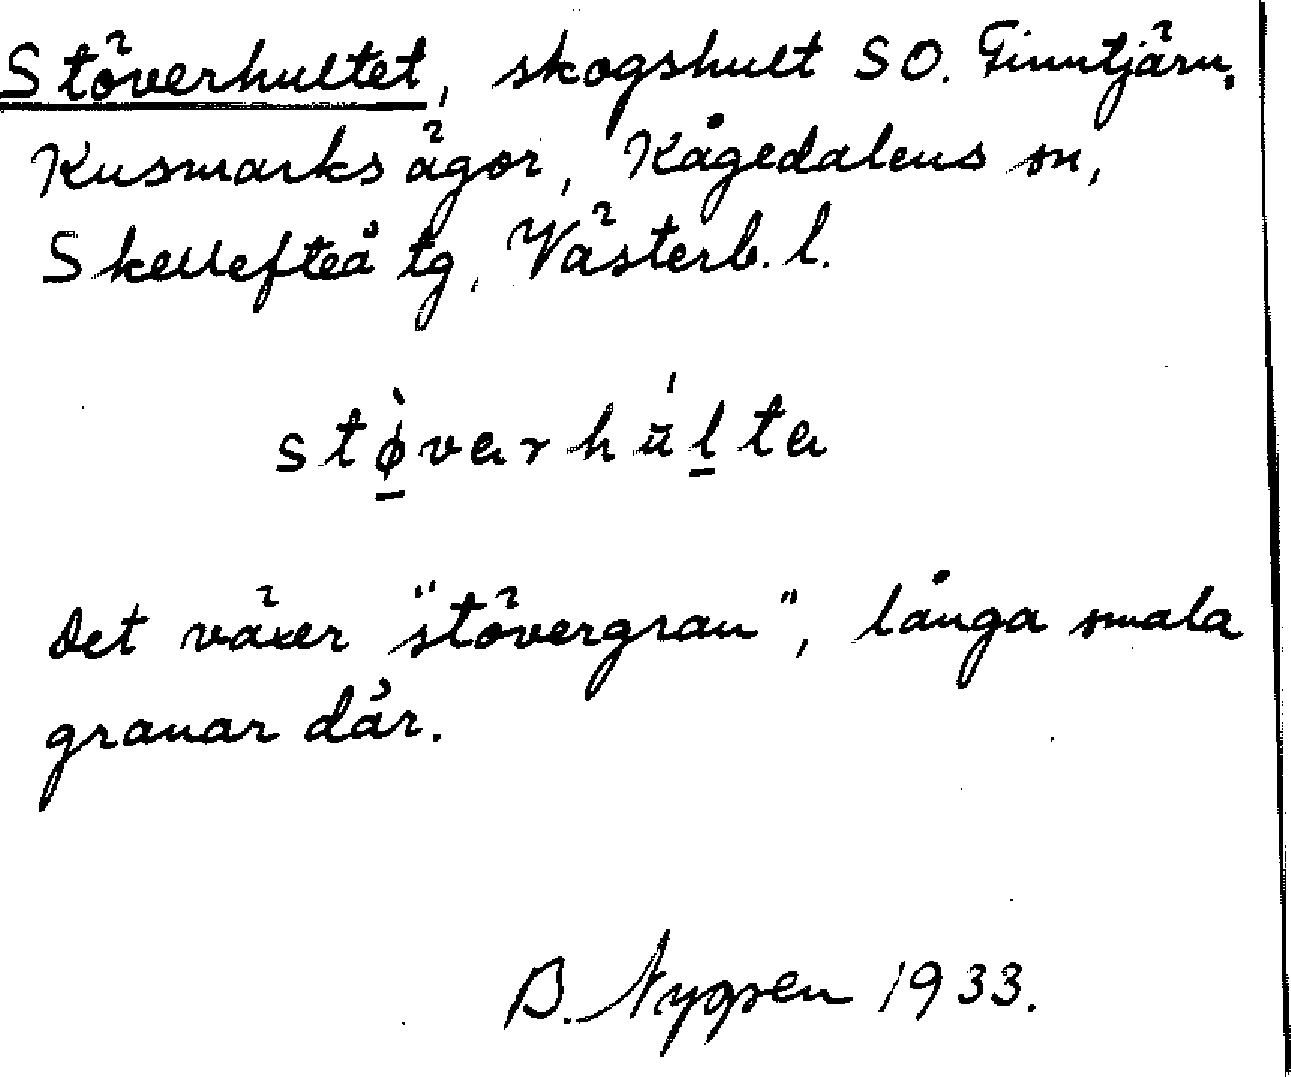 Stöverhultet, skogshult SO. Finntjärn,
Kusmarks ägor, Kågedalens sn,
Skellefteå tg, Västerb. l.
stø̀varhúlta
Det växer "stövergran", långa smala
granar där.
B. Nygren 1933.